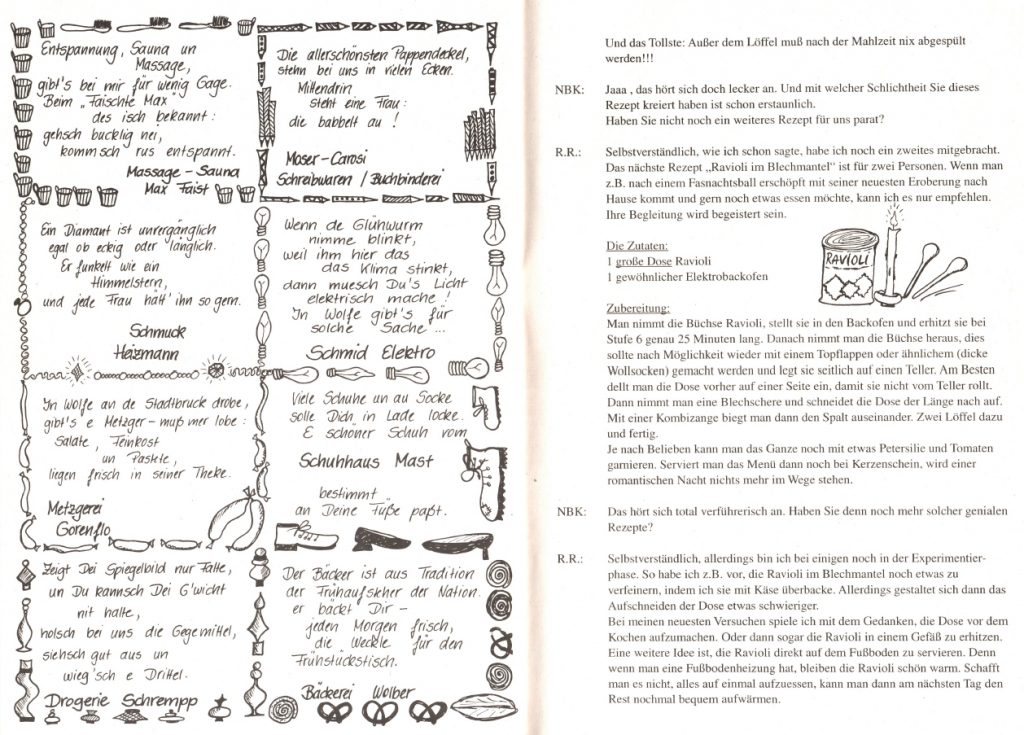 Entspannung, Sauna un
Massage,
gibt's bei mir für wenig Gage.
Beim „Faischte Max"
des isch bekannt:
gehsch bucklig nei,
kommsch rus entspannt.
Massage - Sauna
Max Faist
Die allerschönsten Pappendeckel,
stehn bei uns in vielen Ecken.
Mittendrin
steht eine Frau:
die babbelt au!
Moser-Carosi
Schreibwaren / Buchbinderei
Ein Diamant ist unvergänglich
egal ob eckig oder länglich.
Er funkelt wie ein
Himmelstern,
und jede Frau hätt' ihn so gern.
Schmuck
Heizmann
Wenn de Glühwurm
nimme blinkt,
weil ihm hier das
das Klima stinkt,
dann muesch Du's Licht
elektrisch mache!
In Wolfe gibt's für
solche Sache...
Schmid Elektro
In Wolfe an de Stadtbruck drobe,
gibt's e Metzger - muß mer lobe:
Salate, Feinkost
un Pastete,
liegen frisch in seiner Theke.
Metzgerei
Gorenflo
Viele Schuhe un au Socke
solle Dich in Lade locke.
E schöner Schuh vom
Schuhhaus Mast
bestimmt
an Deine Füße paßt.
Zeigt Dei Spiegelbild nur Falte,
un Du kannsch Dei G'wicht
nit halte,
holsch bei uns die Gegemittel,
siehsch gut aus un
wieg'sch e Drittel.
Drogerie Schrempp
Der Bäcker ist aus Tradition
der Frühaufsteher der Nation.
er bäckt Dir -
jeden Morgen frisch,
die „Weckle" für den
Frühstückstisch.
Bäckerei Wolber
Und das Tollste: Außer dem Löffel muß nach der Mahlzeit nix abgespült
werden!!!
NBK: Jaaa , das hört sich doch lecker an. Und mit welcher Schlichtheit Sie dieses
Rezept kreiert haben ist schon erstaunlich.
Haben Sie nicht noch ein weiteres Rezept für uns parat?
R.R.: Selbstverständlich, wie ich schon sagte, habe ich noch ein zweites mitgebracht.
Das nächste Rezept „Ravioli im Blechmantel" ist für zwei Personen. Wenn man
z.B. nach einem Fasnachtsball erschöpft mit seiner neuesten Eroberung nach
Hause kommt und gern noch etwas essen möchte, kann ich es nur empfehlen.
Ihre Begleitung wird begeistert sein.
Die Zutaten:
1 große Dose Ravioli
1 gewöhnlicher Elektrobackofen
RAVIOLI
Zubereitung:
Man nimmt die Büchse Ravioli, stellt sie in den Backofen und erhitzt sie bei
Stufe 6 genau 25 Minuten lang. Danach nimmt man die Büchse heraus, dies
sollte nach Möglichkeit wieder mit einem Topflappen oder ähnlichem (dicke
Wollsocken) gemacht werden und legt sie seitlich auf einen Teller. Am Besten
dellt man die Dose vorher auf einer Seite ein, damit sie nicht vom Teller rollt.
Dann nimmt man eine Blechschere und schneidet die Dose der Länge nach auf.
Mit einer Kombizange biegt man dann den Spalt auseinander. Zwei Löffel dazu
und fertig.
Je nach Belieben kann man das Ganze noch mit etwas Petersilie und Tomaten
garnieren. Serviert man das Menü dann noch bei Kerzenschein, wird einer
romantischen Nacht nichts mehr im Wege stehen.
NBK: Das hört sich total verführerisch an. Haben Sie denn noch mehr solcher genialen
Rezepte?
R.R.: Selbstverständlich, allerdings bin ich bei einigen noch in der Experimentier-
phase. So habe ich z.B. vor, die Ravioli im Blechmantel noch etwas zu
verfeinern, indem ich sie mit Käse überbacke. Allerdings gestaltet sich dann das
Aufschneiden der Dose etwas schwieriger.
Bei meinen neuesten Versuchen spiele ich mit dem Gedanken, die Dose vor dem
Kochen aufzumachen. Oder dann sogar die Ravioli in einem Gefäß zu erhitzen.
Eine weitere Idee ist, die Ravioli direkt auf dem Fußboden zu servieren. Denn
wenn man eine Fußbodenheizung hat, bleiben die Ravioli schön warm. Schafft
man es nicht, alles auf einmal aufzuessen, kann man dann am nächsten Tag den
Rest nochmal bequem aufwärmen.